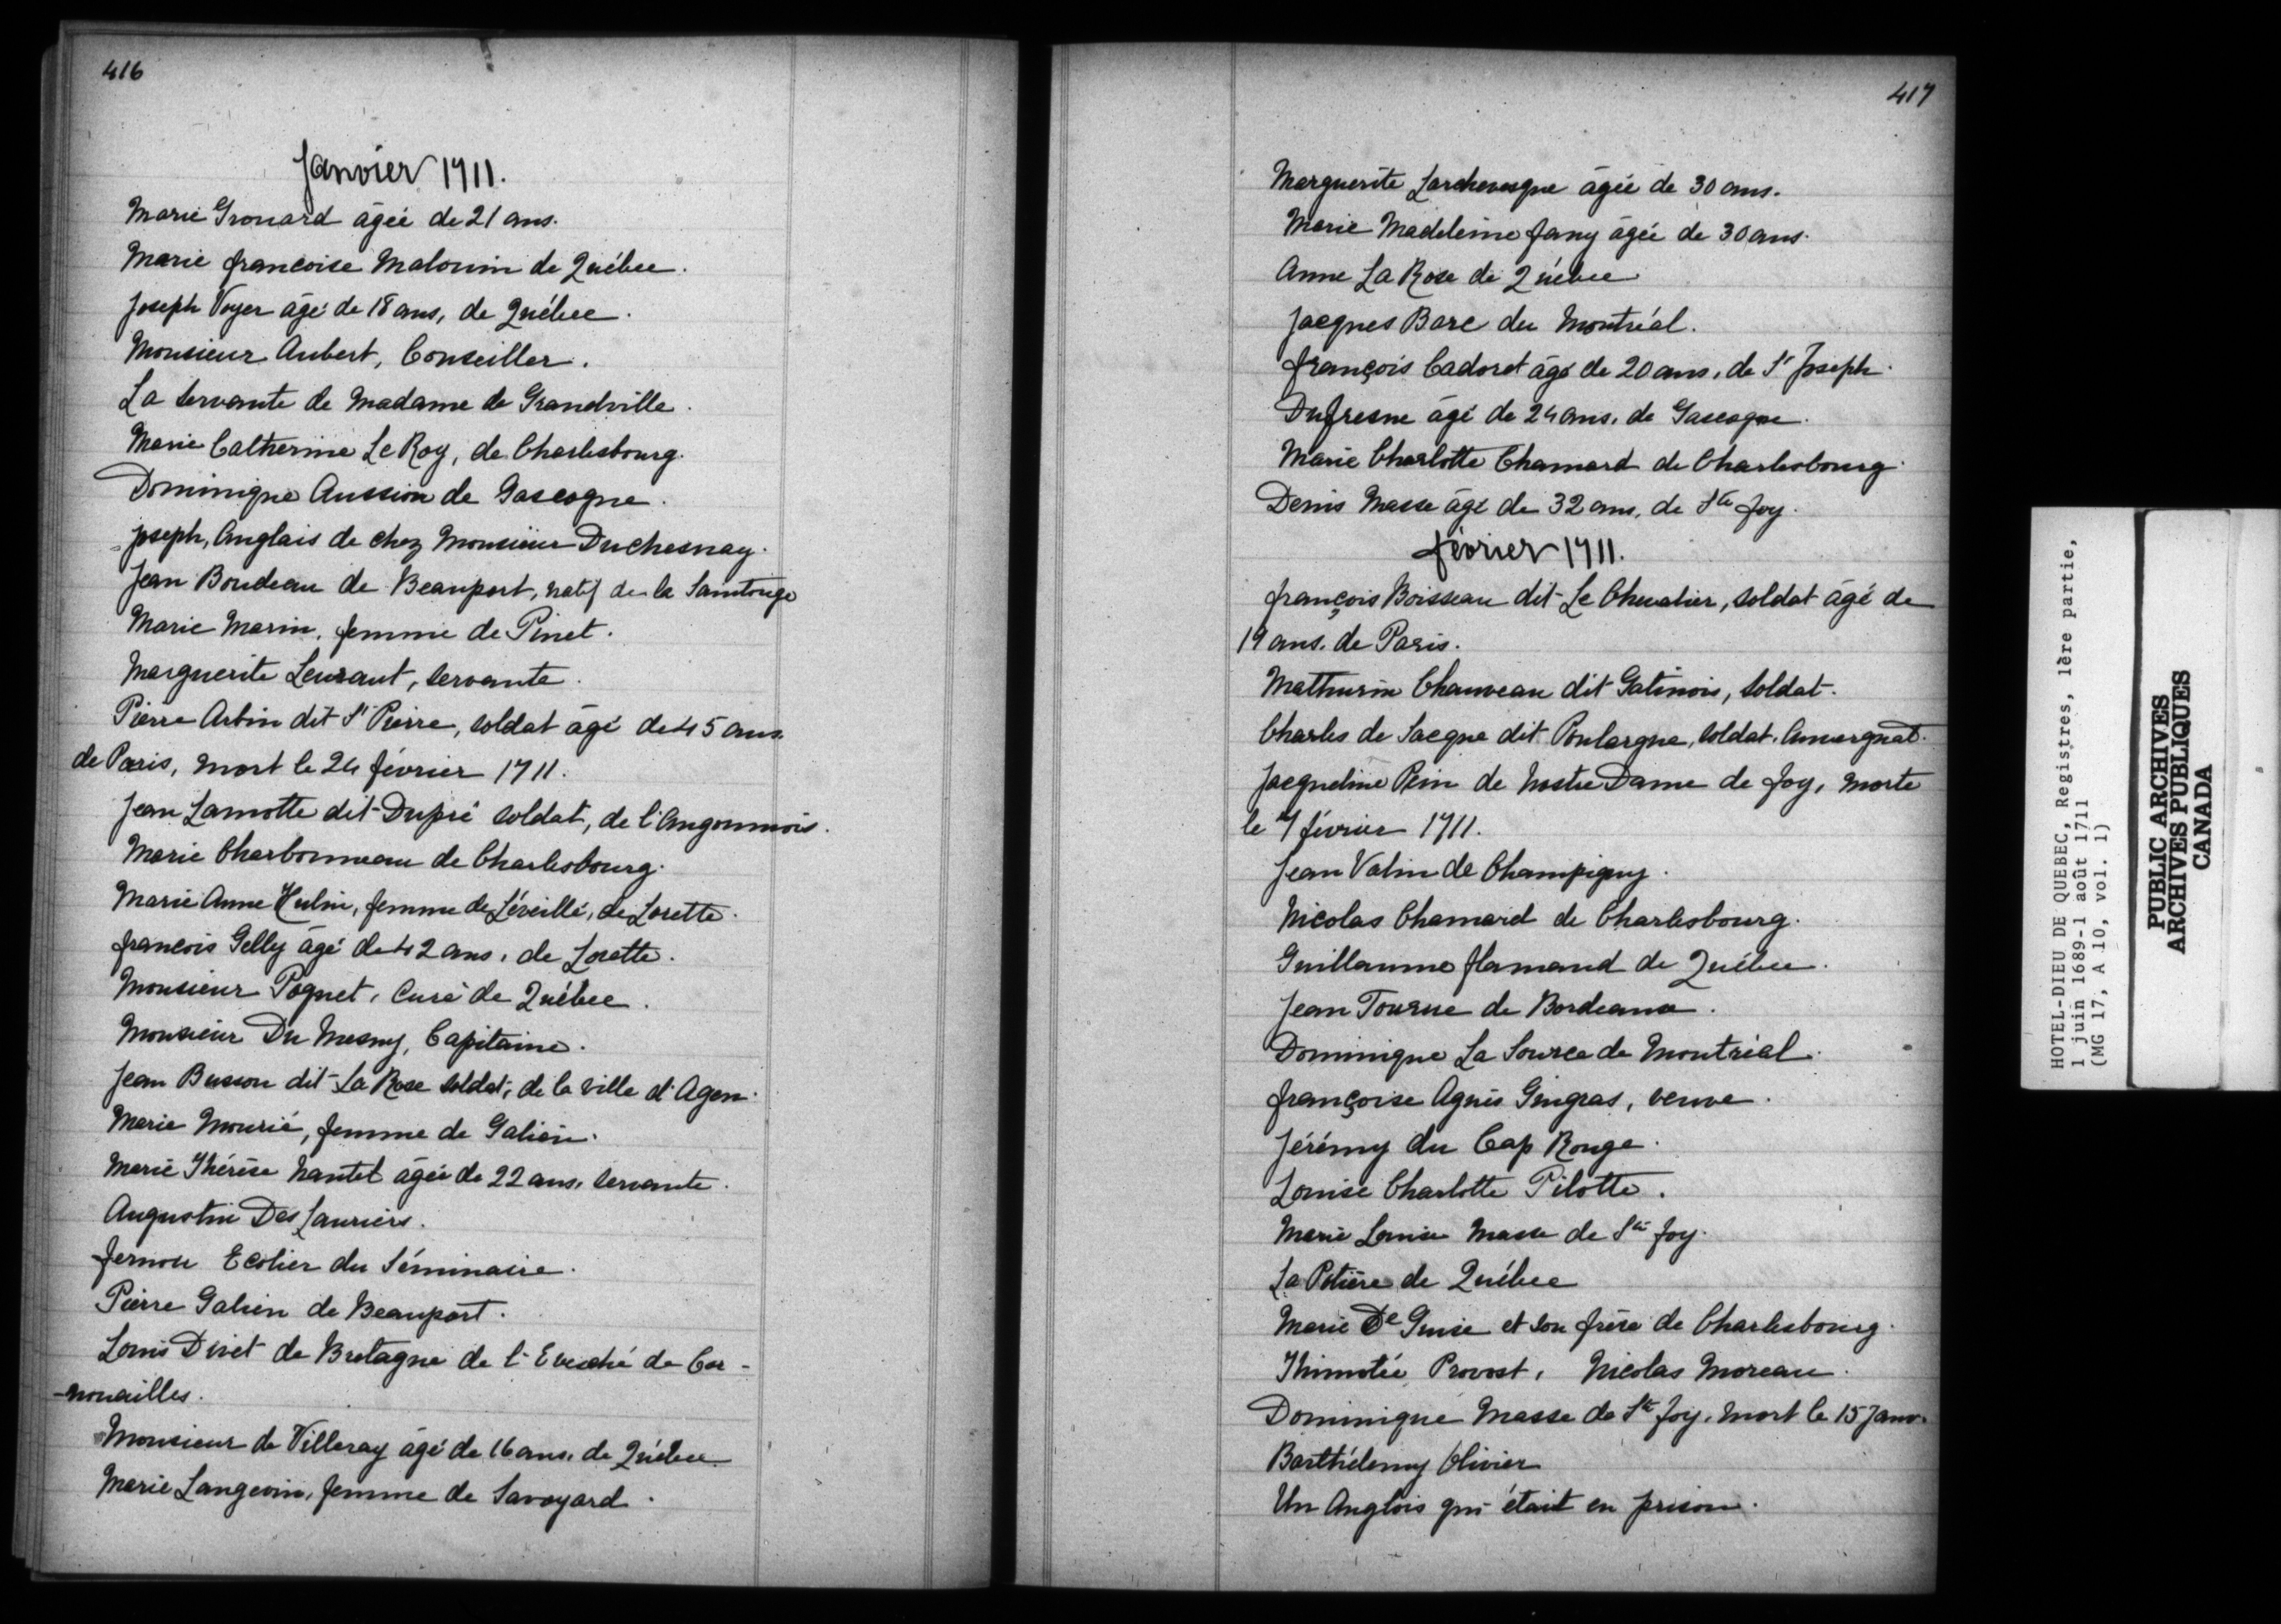 416
Janvier 1711.
Marie Grouard âgée de 21 ans.
Marie francoise Malouin de Québec.
Joseph Voyer âgé de 18 ans, de Québec.
Monsieur Aubert, Conseiller.
La servante de Madame de Grandville.
Marie Catherine Le Roy, de Charlesbourg.
Dominique Aussion de Gascogne.
Joseph, Anglais de chez Monsieur Duchesnay.
Jean Boudeau de Beauport, natif de la Saintonge
Marie Marin, femme de Pinet.
Marguerite Leuraut, servante.
Pierre Arbin dit St Pierre, soldat âgé de 45 ans
de Paris, mort le 24 février 1711.
Jean Lamotte dit Dupré soldat, de l'Angoumois.
Marie Charbonneau de Charlesbourg.
Marie Anne Hulin, femme de Léveillé, de Lorette.
francois Gelly âgé de 42 ans, de Lorette.
Monsieur Poquet, Curé de Québec.
Monsieur Du Mesny, Capitaine.
Jean Busson dit La Rose soldat, de la ville d'Agen.
Marie Mourié, femme de Galien.
Marie Thérèse Nautel âgée de 22 ans, servante.
Augustin Des Lauriers.
fernou Ecolier du Séminaire.
Pierre Galien de Beauport.
Louis Divet de Bretagne de l'Eveché de Cor-
-nouailles.
Monsieur de Villeray âgé de 16 ans, de Québec.
Marie Langevin, femme de Savoyard.
417
Marguerite Larchevesque âgée de 30 ans.
Marie Madeleine fany âgée de 30 ans.
Anne La Rose de Québec
Jacques Bare du Montréal.
françois Cadoret âgé de 20 ans, de St Joseph.
Dufresne âgé de 24 ans, de Gascogne.
Marie Charlotte Chamard de Charlesbourg.
Denis Masse âgé de 32 ans, de Ste foy.
février 1711.
françois Boisseau dit Le Chevalier, soldat âgé de
19 ans, de Paris.
Mathurin Chauveau dit Gatinois, soldat.
Charles de Sacque dit Poulargue, soldat, Auvergnat.
Jacqueline Pin de Nostre Dame de foy, morte
le 7 février 1711.
Jean Valin de Champigny.
Nicolas Chamard de Charlesbourg.
Guillaume flamand de Québec.
Jean Tourue de Bordeaux.
Dominique La Source de Montréal.
françoise Agnès Gingras, veuve.
Jérémy du Cap Rouge.
Louise Charlotte Pilotte.
Marie Louise Masse de Ste foy.
La Potière de Québec
Marie De Guise et son frère de Charlesbourg.
Thimotée Provost, Nicolas Moreau.
Dominique Masse de Ste foy, mort le 15 Janv.
Barthélemy Olivier
Un Anglois qui était en prison.
HOTEL-DIEU DE QUEBEC, Registres, 1ère partie,
1 juin 1689-1 août 1711
(MG 17, A 10, vol. 1)
PUBLIC ARCHIVES
ARCHIVES PUBLIQUES
CANADA